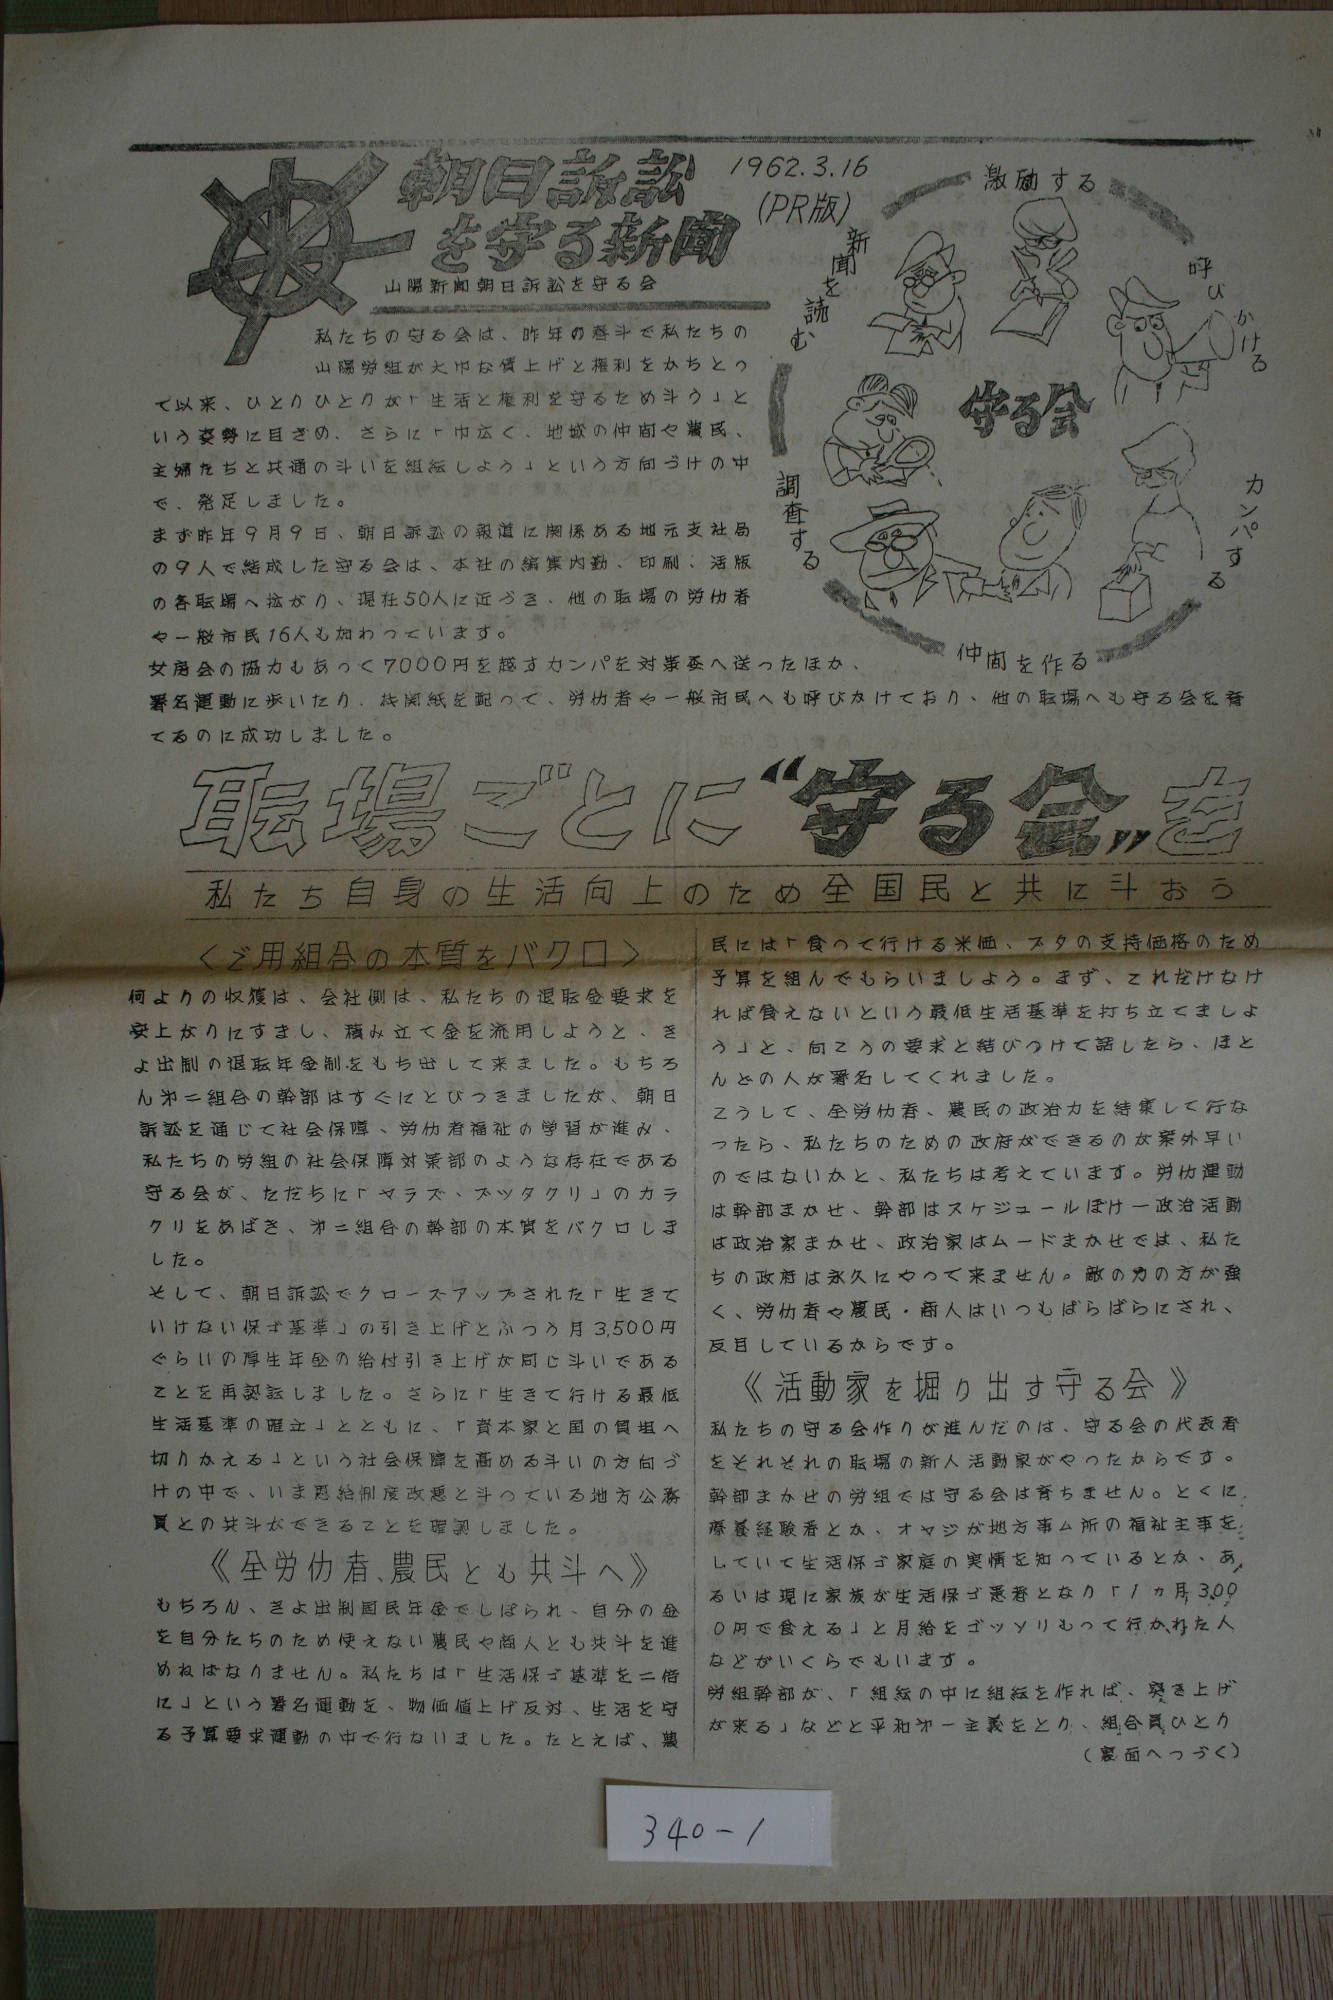 朝日訴訟
を守る新聞
山陽新聞朝日訴訟を守る会
1962.3.16
(PR版)
激励する
呼びかける
カンパする
仲間を作る
調査する
新聞を読む
守る会
私たちの守る会は、昨年の春斗で私たちの
山陽労組が大巾な賃上げと権利をかちとっ
て以来、ひとりひとりが「生活と権利を守るため斗う」と
いう姿勢に目ざめ、さらに「巾広く、地域の仲間や農民、
主婦たちと共通の斗いを組転しよう」という方向づけの中
で、発足しました。
まず昨年9月9日、朝日訴訟の報道に関係ある地元支社局
の9人で結成した守る会は、本社の編集内勤、印刷、活版
の各転場へ拡がり、現在50人に近づき、他の転場の労仂者
や一般市民16人も加わっています。
女房会の協力もあって7000円を越すカンパを対策委へ送ったほか、
署名運動に歩いたり、機関紙を配って、労仂者や一般市民へも呼びかけており、他の転場へも守る会を育
てるのに成功しました。
転場ごとに“守る会”を
私たち自身の生活向上のため全国民と共に斗おう
<ご用組合の本質をバクロ>
何よりの収獲は、会社側は、私たちの退転金要求を
安上がりにすまし、積み立て金を流用しようと、き
よ出制の退転年金制をもち出して来ました。もちろ
ん㐧二組合の幹部はすぐにとびつきましたが、朝日
訴訟を通じて社会保障、労仂者福祉の学習が進み、
私たちの労組の社会保障対策部のような存在である
守る会が、ただちに「ヤラズ・ブッタクリ」のカラ
クリをあばき、㐧二組合の幹部の本質をバクロしま
した。
そして、朝日訴訟でクローズアップされた「生きて
いけない保ゴ基準」の引き上げとふつう月3,500円
ぐらいの厚生年金の給付引き上げが同じ斗いである
ことを再認転しました。さらに「生きて行ける最低
生活基準の確立」とともに、「資本家と国の負担へ
切りかえる」という社会保障を高める斗いの方向づ
けの中で、いま恩給制度改悪と斗っている地方公務
員との共斗ができることを確認しました。
《全労仂者、農民とも共斗へ》
もちろん、きよ出制国民年金でしばられ、自分の金
を自分たちのため使えない農民や商人とも共斗を進
めねばなりません。私たちは「生活保ゴ基準を二倍
に」という署名運動を、物価値上げ反対、生活を守
る予算要求運動の中で行ないました。たとえば、農
民には「食って行ける米価、ブタの支持価格のため
予算を組んでもらいましよう。まず、これだけなけ
れば食えないという最低生活基準を打ち立てましよ
う」と、向こうの要求と結びつけて話したら、ほと
んどの人が署名してくれました。
こうして、全労仂者、農民の政治力を結集して行な
ったら、私たちのための政府ができるのが案外早い
のではないかと、私たちは考えています。労仂運動
は幹部まかせ、幹部はスケジュールぼけ―政治活動
は政治家まかせ、政治家はムードまかせでは、私た
ちの政府は永久にやって来ません。敵の力の方が強
く、労仂者や農民・商人はいつもばらばらにされ、
反目しているからです。
《活動家を掘り出す守る会》
私たちの守る会作りが進んだのは、守る会の代表者
をそれぞれの転場の新人活動家がやったからです。
幹部まかせの労組では守る会は育ちません。とくに
療養経験者とか、オヤジが地方事ム所の福祉主事を
していて生活保ゴ家庭の実情を知っているとか、あ
るいは現に家族が生活保ゴ患者となり「1ヵ月300
0円で食える」と月給をゴッソリもって行かれた人
などがいくらでもいます。
労組幹部が、「組転の中に組転を作れば、突き上げ
が来る」などと平和㐧一主義をとり、組合員ひとり
(裏面へつづく)
340-1